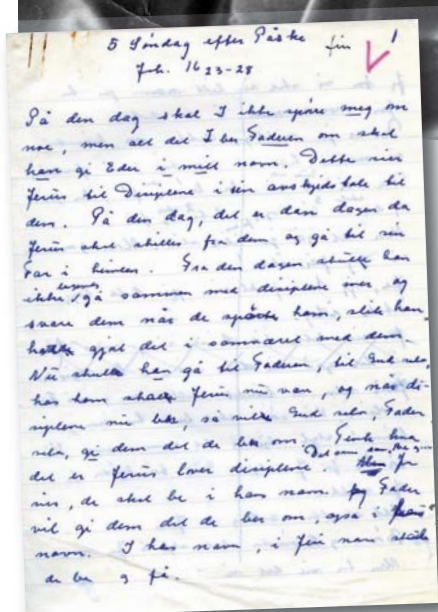 5 Søndag efter Påske fin 1
Joh. 16 23-28
På den dag skal I ikke spørre meg om
noe, men alt det I ber Faderen om skal
han gi Eder i mitt navn. Dette sier
Jesus til Disiplene i sin avskjedstale til
dem. På den dag, det er den dagen da
Jesus skal skilles fra dem og gå til sin
Far i himlen. Fra den dagen skulle han
ikke gå sammen med disiplene mer, og
svare dem når de spørte ham, slik han
hadde gjøt det i samværet med dem.
Nu skulle han gå til Faderen, til Gud selv,
hos ham skulle Jesus nu være, og når di-
siplene nu ber, så vil Gud selv, Fader
selv, gi dem det de ber om. Tenk hva
det er Jesus lover disiplene. Det som
sier, de skal be i hans navn. Fader
vil gi dem det de ber om, også i Jesu
navn. I hans navn, i Jesu navn skulde
de be og få.